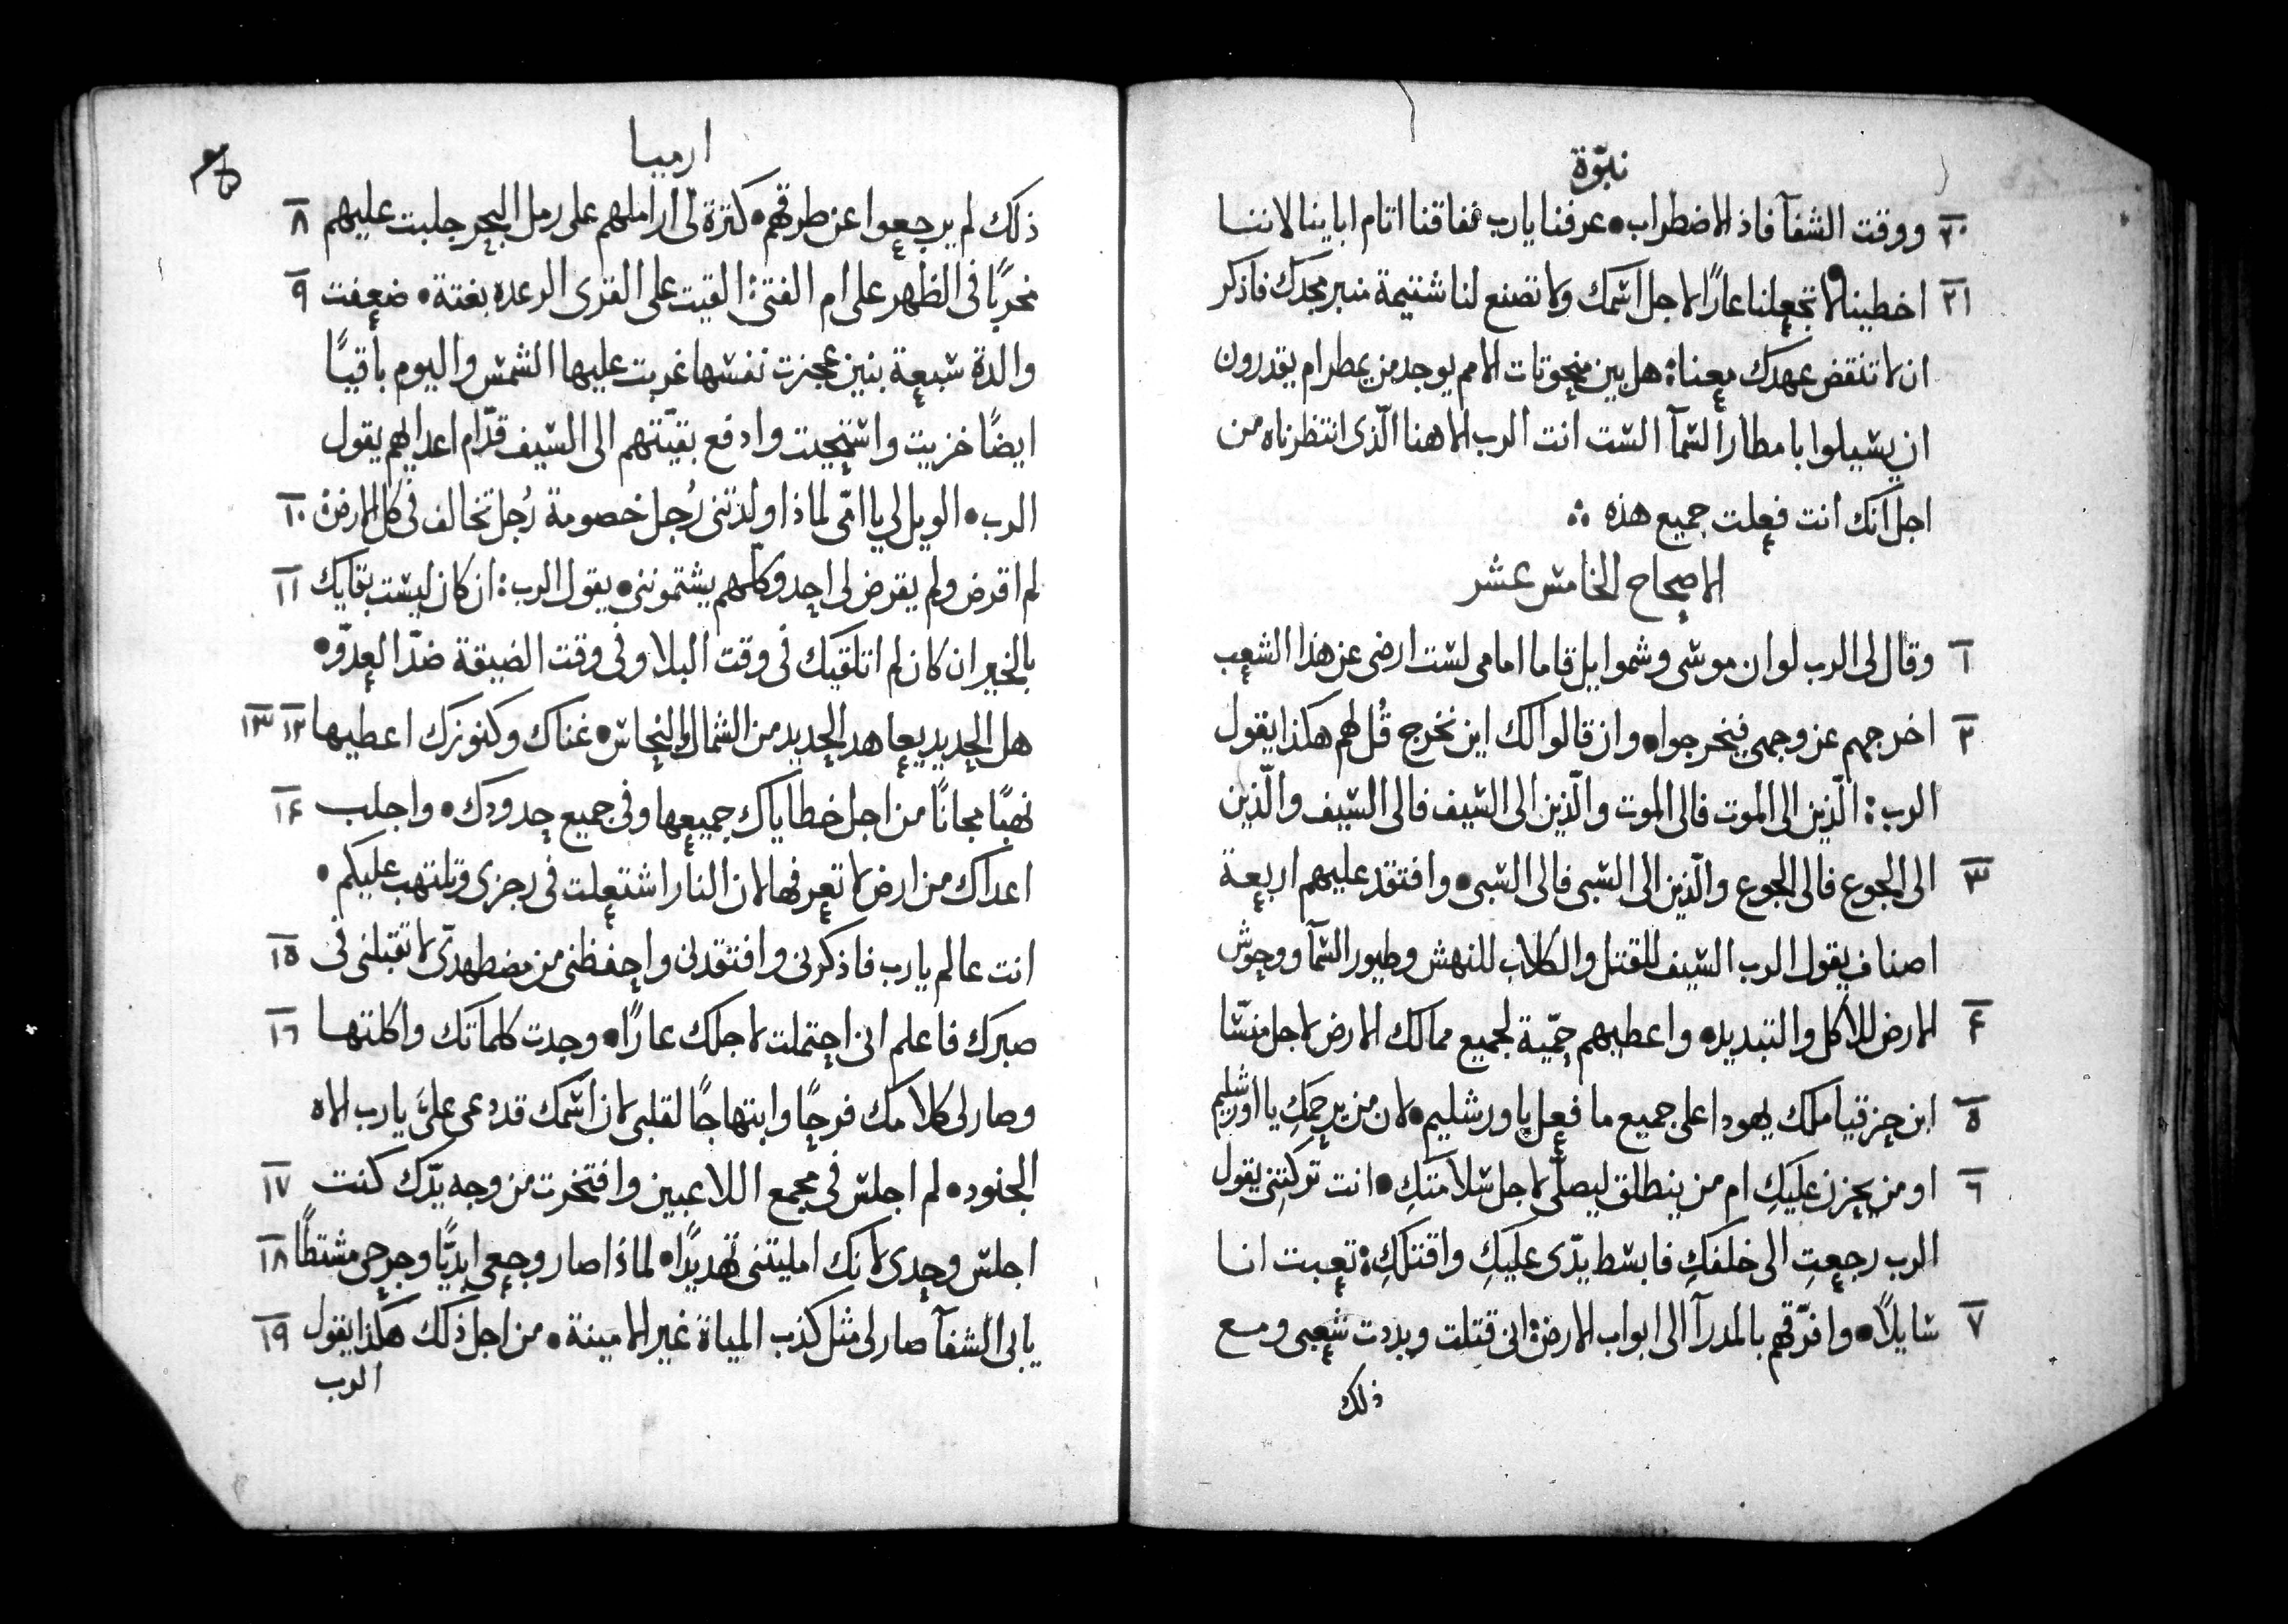 نبوّة
٢٠ ووقت الشفآ فاذ الاضطراب • عرفنا يارب نفاقنا اثام اباينا لاننا
٢١ اخطينا لا تجعلنا عارًا لاجل اسمك ولا تصنع لنا شتيمة منبر مجدك فاذكر
ان لا تنقض عهدك معنا : هل بين منحوتات الامم يوجد من يمطر ام يقدرون
ان يسيلوا بامطار السمآ الست انت الرب الاهنا الّذى انتظرناه من
اجل انك انت فعلت جميع هذه ⁖
الاصحاح الخامس عشر
١ وقال لى الرب لو ان موسى وشموايل قاما امامى لست ارضى عن هذا الشعب
٢ اخرجهم عن وجهى فيخرجوا • وان قالوا لك اين نخرج قُل لهم هكذا يقول
الرب : الّذين الى الموت فالى الموت والّذين الى السيف فالى السيف والّذين
٣ الى الجوع فالى الجوع والّذين الى السبى فالى السبى • وافتقد عليهم اربعة
اصناف يقول الرب السيف للقتل والكلاب للنهش وطيور السمآ ووحوش
٤ الارض للاكل والتبديد • واعطيهم حمّية لجميع ممالك الارض لاجل منسّا
٥ ابن حزقيا ملك يهودا على جميع ما فعل باورشليم • لان من يرحمكِ يا اورشليم
٦ او من يحزن عليكِ ام من ينطلق ليصلّى لاجل سلامتكِ • انت تركتِنى يقول
الرب رجعتِ الى خلفكِ فابسط يدّى عليكِ واقتلكِ : تعبت انا
٧ سايلاً • وافرّقهم بالمدرآ الى ابواب الارض : انى قتلت وبددت شعبى ومع
ذلك
ارميا
٨ ذلك لم يرجعوا عن طرقهم • كثرة لى اراملهم على رمل البحر جلبت عليهم
٩ مخربًا فى الظهر على ام الفتى : القيت على القرى الرعده بغتة • ضعفت
والدة سبعة بنين عجزت نفسها غربت عليها الشمس واليوم باقيًا
ايضًا خزيت واستحيت وادفع بقيّتهم الى السيف قدّام اعدايهم يقول
١٠ الرب • الويل لى يا امّى لماذا ولدتنى رُجل خصومة رُجل تخالف فى كل الارض :
١١ لم اقرض ولم يقرض لى احد وكلّهم يشتموننى • يقول الرب : ان كان ليست بقاياك
بالخير ان كان لم اتلقيك فى وقت البلا وفى وقت الضيقة ضدّ العدّو •
١٢ ١٣ هل الحديد يعاهد الحديد من الشمال والنحاس • غناك وكنوزك اعطيها
١٤ نهبًا مجانًا من اجل خطاياك جميعها وفى جميع حدودك • واجلب
اعداك من ارض لا تعرفها لان النار اشتعلت فى رجزى وتلتهب عليكم •
١٥ انت عالم يارب فاذكرنى وافتقدنى واحفظنى من مضطهدىّ لا تقبلنى فى
١٦ صبرك فاعلم انى احتملت لاجلك عارًا • وجدت كلماتك واكلتها
وصار لى كلامك فرحًا وابتهاجًا لقلبى لان اسمك قد دعى علىَّ يارب الاه
١٧ الجنود • لم اجلس فى مجمع اللاعبين وافتخرت من وجه يدّك كنت
١٨ اجلس وحدى لانك امليتنى تهديدًا • لماذا صار وجعى ابديًّا وجرحى مشتطًا
١٩ يابى الشفآ صار لى مثل كذب المياة غير الامينة • من اجل ذلك هكذا يقول
الرب